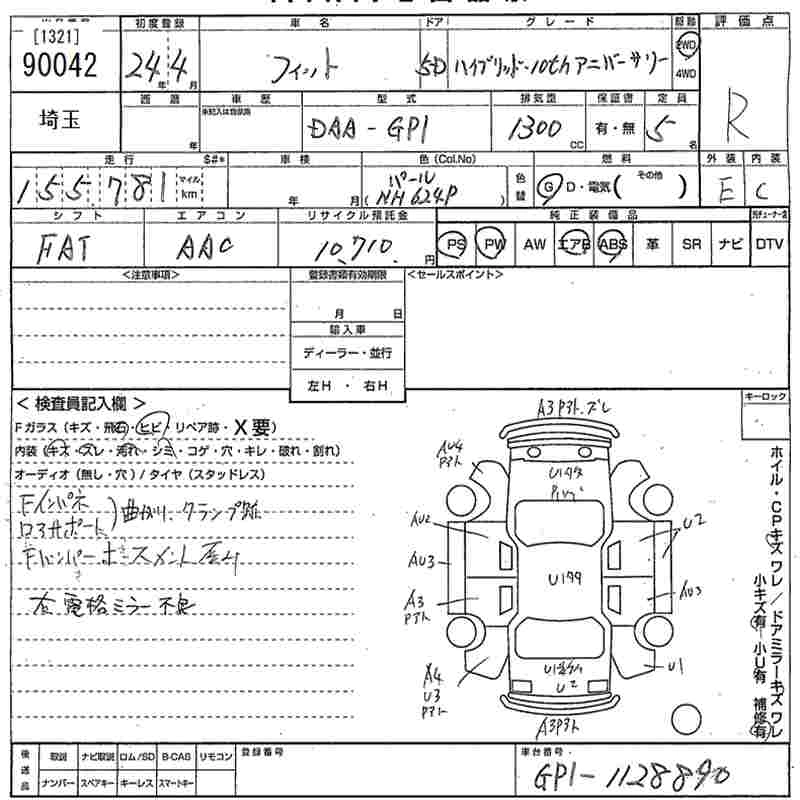 [1321]
90042
初度登録
車名
ドア
グレード
駆動
評価点
24年4月
フィット
5D
ハイブリッド・10thアニバーサリー
2WD
4WD
R
埼玉
車歴
未記入は自家用
型式
排気量
保証書
定員
年
DAA-GP1
1300cc
有・無
5名
走行
S#*
車検
色(Col.No)
燃料
その他
外装
内装
155781
マイル
km
年
月
パール
(NH624P)
色替
G D・電気( )
E
C
シフト
エアコン
リサイクル預託金
純正装備品
FAT
AAC
10,710.円
PS
PW
AW
エアB
ABS
革
SR
ナビ
DTV
<注意事項>
登録書類有効期限
<セールスポイント>
月 日
輸入車
ディーラー・並行
左H ・ 右H
キーロック
<検査員記入欄>
Fガラス(キズ・飛石・ヒビ・リペア跡・X要)
内装(キズ・スレ・汚れ・シミ・コゲ・穴・キレ・破れ・割れ)
オーディオ(無し・穴)/タイヤ(スタッドレス)
Fインパネ
ロアサポート
曲がり、クランプ難
右電格ミラー不良
A3P3ト.ズレ
AU4
P3ト
AU2
AU3
A3
P3ト
A4
U3
P3ト
U2
AU3
U1
U2
A3P3ト
ホイル・CPキズワレ/ドアミラーキズワレ
小キズ有 小U有 補修有
後送品
取説
ナビ取説
ロム/SD
B-CAS
リモコン
ナンバー
スペアキー
キーレス
スマートキー
登録番号
車台番号
GP1-1128890